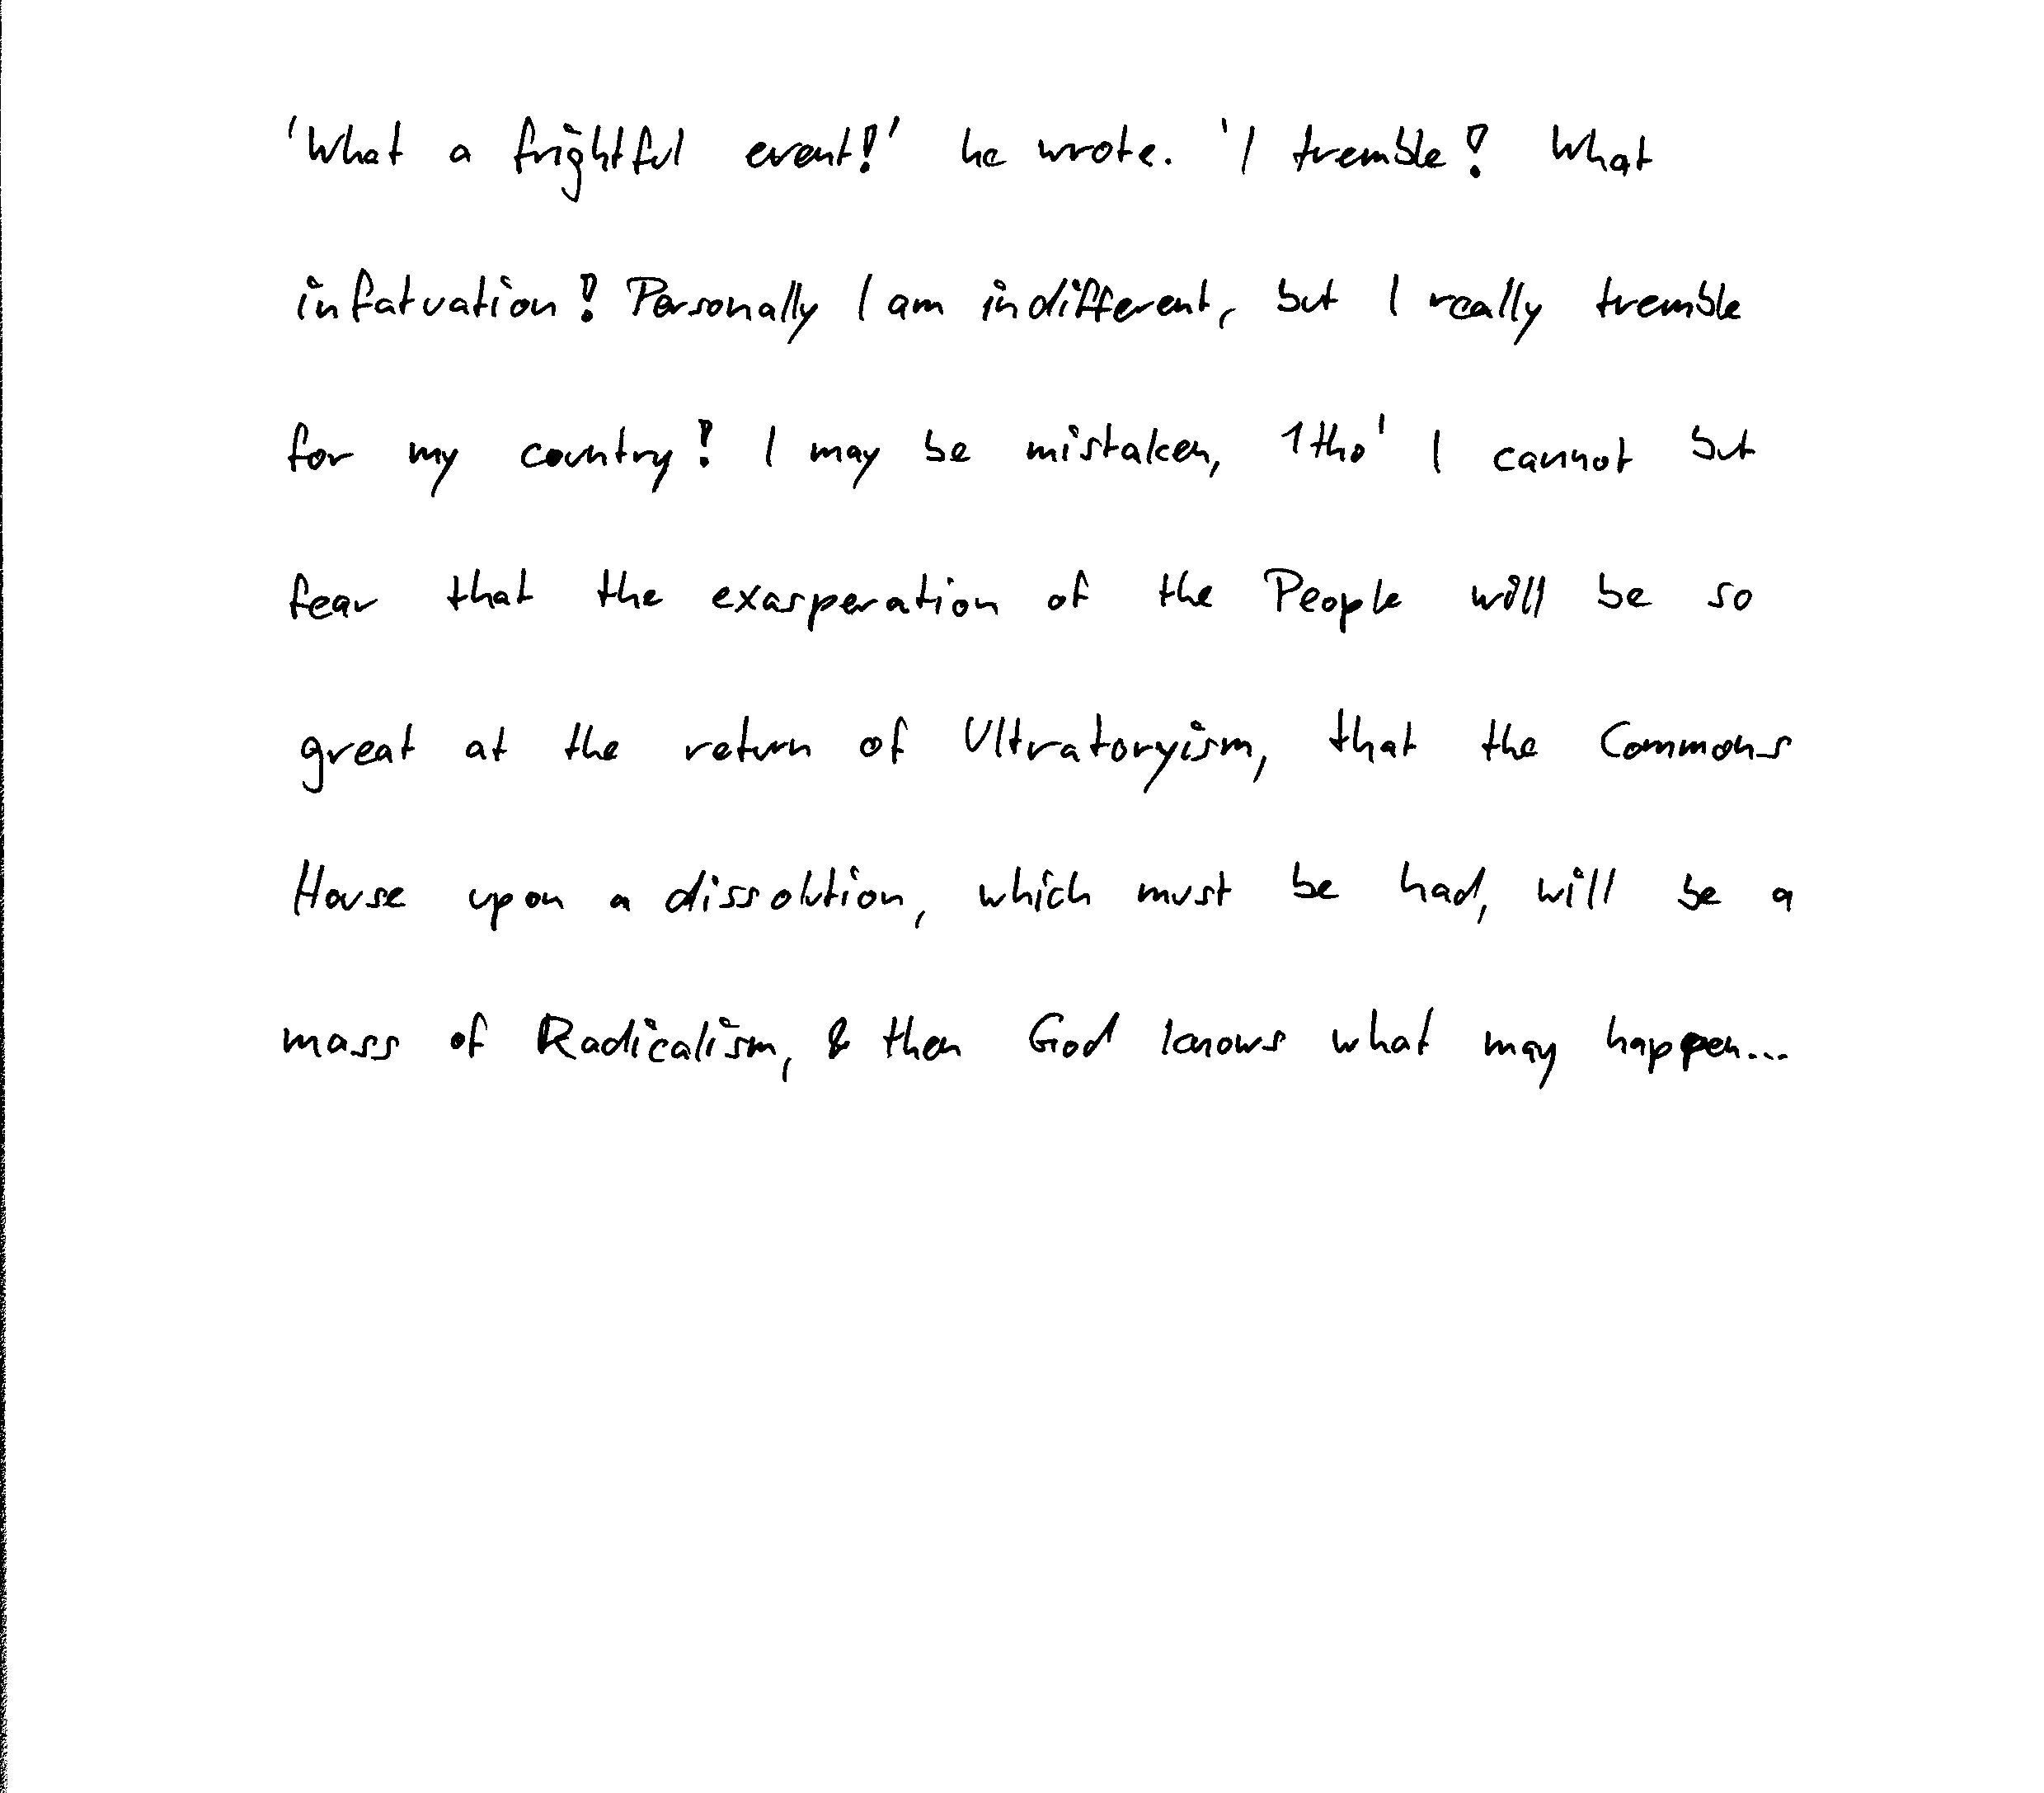 'What a frightful event!' he wrote. 'I tremble! What
infatuation! Personally I am indifferent, but I really tremble
for my country! I may be mistaken, 1tho' I cannot but
fear that the exasperation of the People will be so
great at the return of Ultratoryism, that the Commons
House upon a dissolution, which must be had, will be a
mass of Radicalism, & then God knows what may happen...